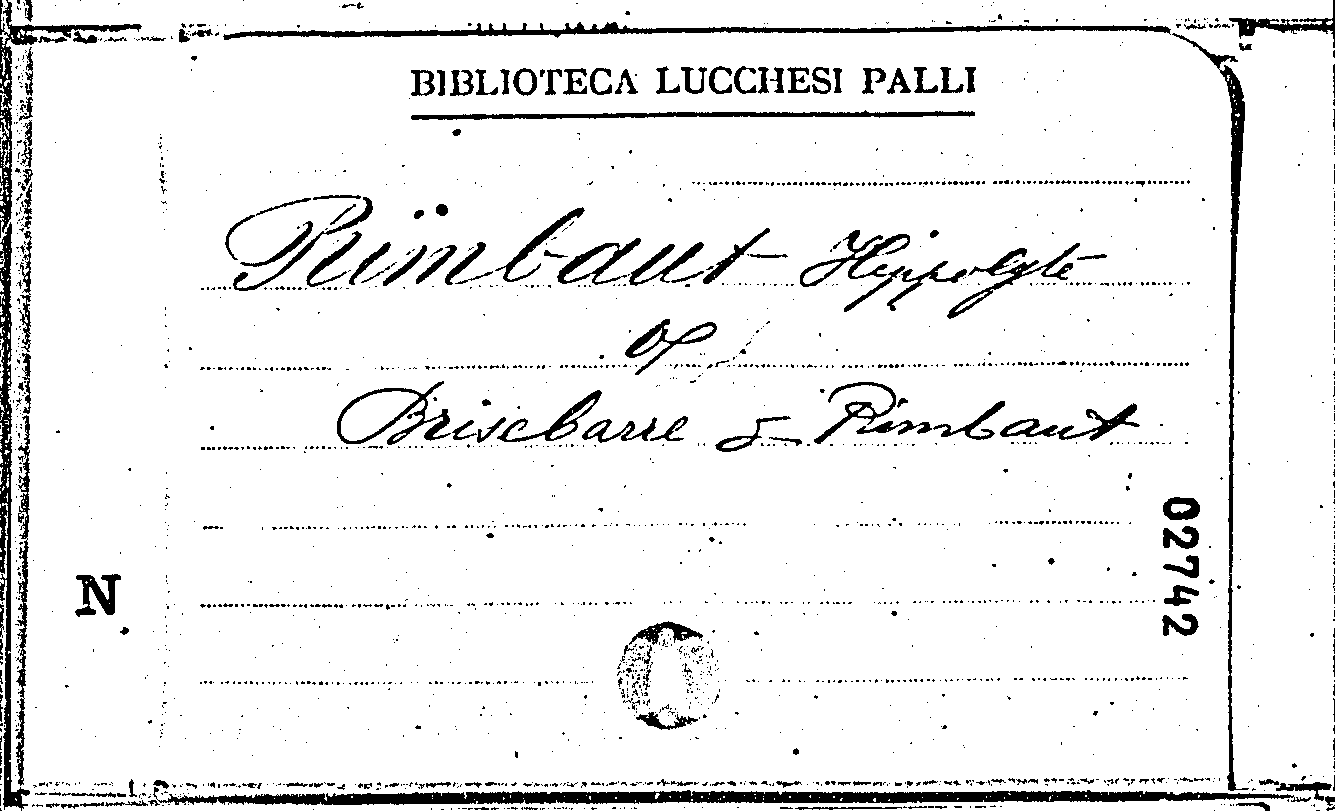 BIBLIOTECA LUCCHESI PALLI
Rimbaut Hippolyte
Brisebarre & Rimbaut
02742
N